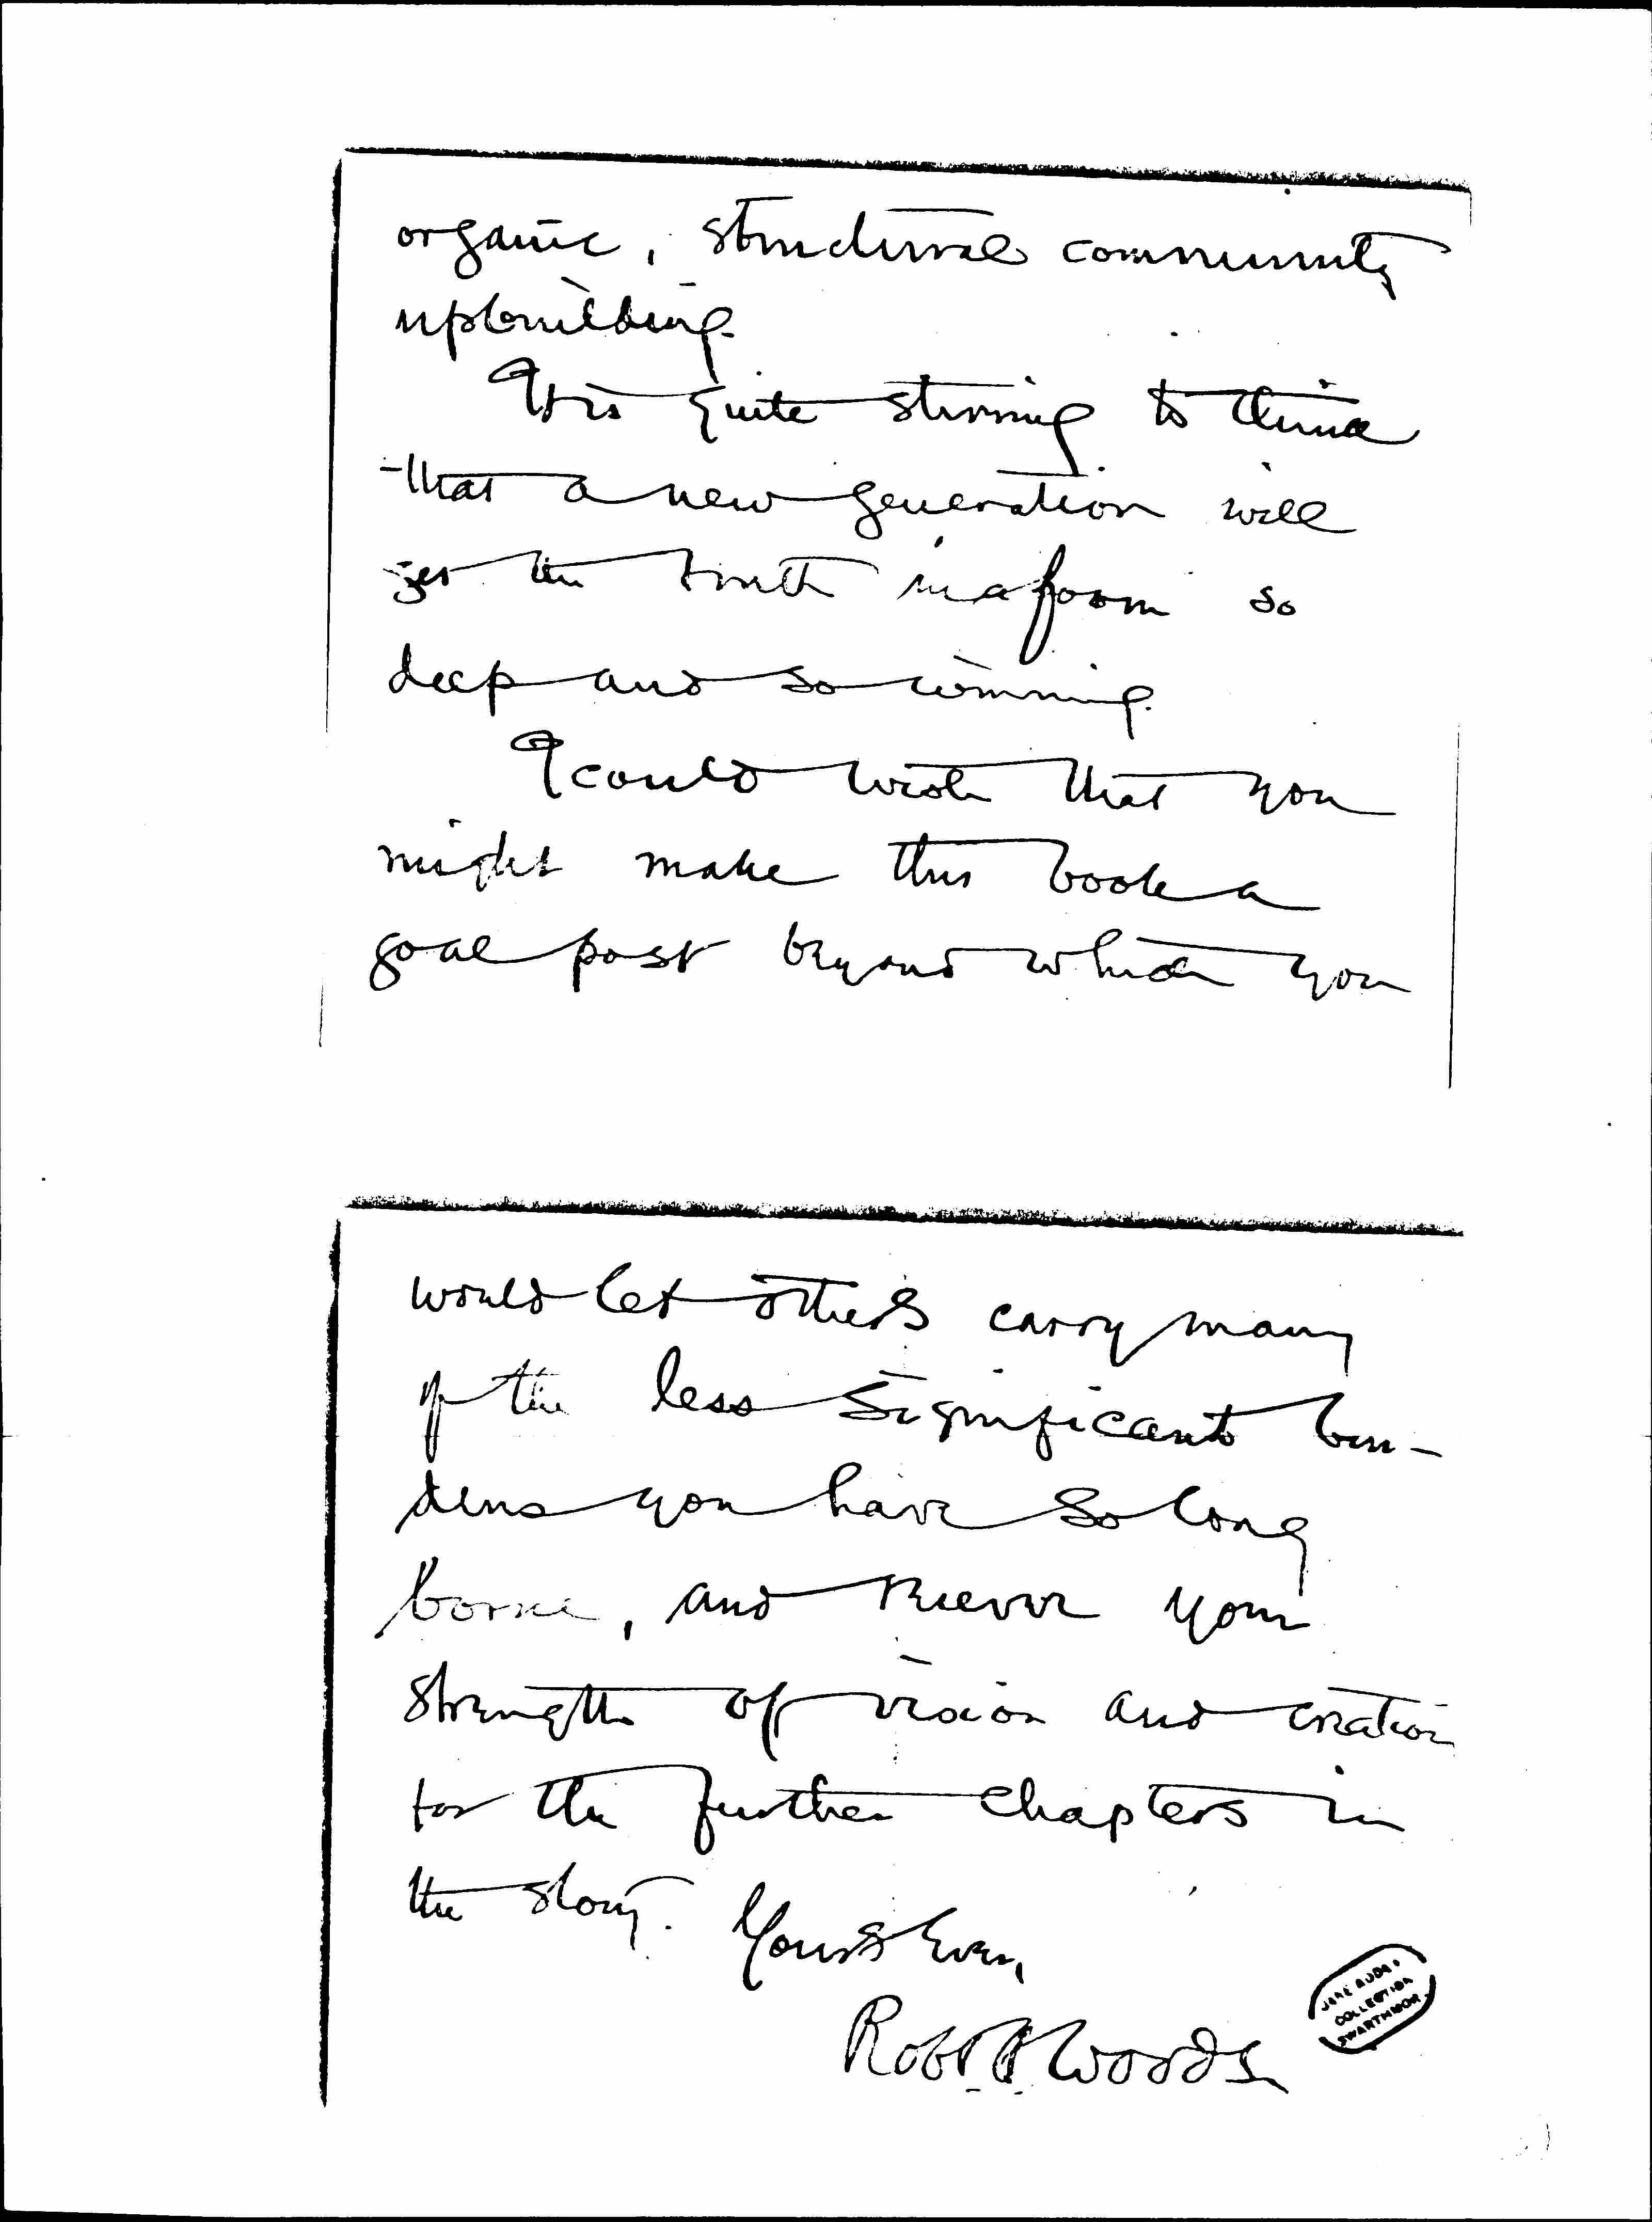 organic, structural community
upbuilding.
It is quite stirring to think
that a new generation will
get the truth in a form so
deep and so winning.
I could wish that you
might make this book a
goal post beyond which you
would let others carry many
of the less significant bur-
dens you have so long
borne, and your
strength of vision and creation
for the further chapters in
the story. Yours ever,
Robt A Woods
JANE ADDAMS
COLLECTION
SWARTHMORE